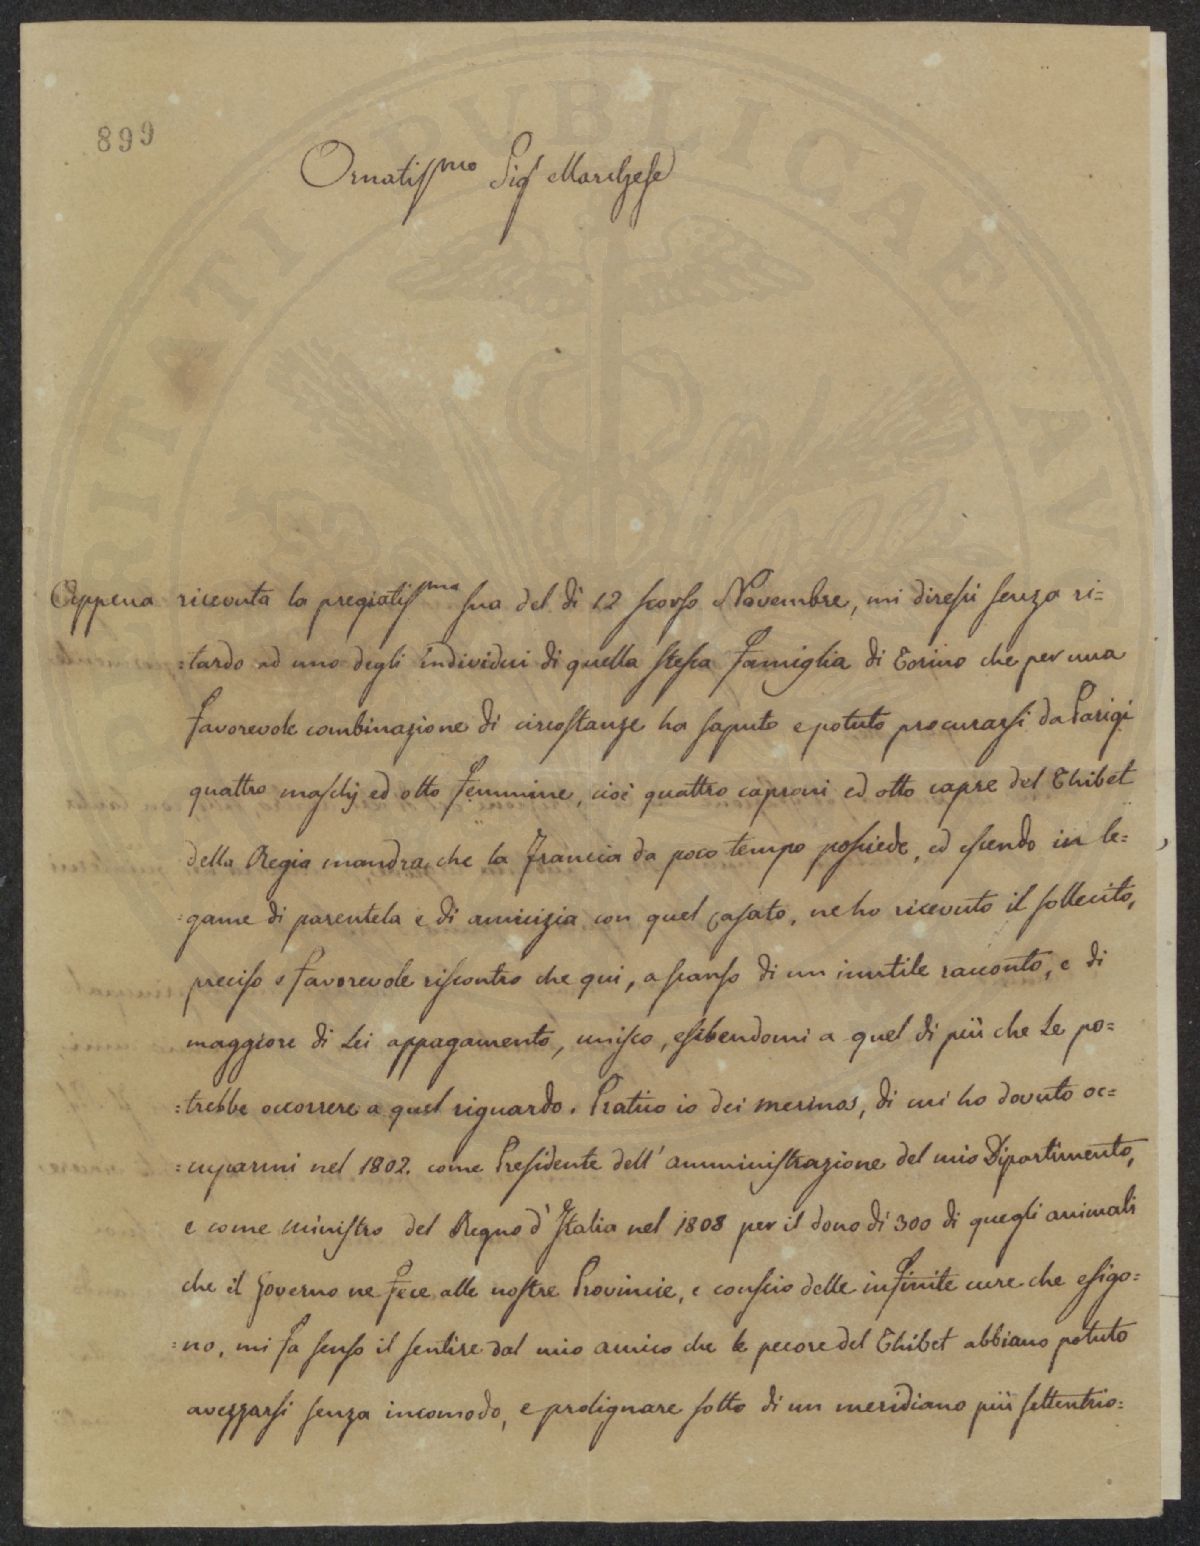 899
Ornatissmo Sigr Marchese
Appena ricevuta la pregiatissma sua del dì 12 scorso Novembre, mi diressi senza ri=
=tardo ad uno degli individui di quella stessa famiglia di Torino che per una
favorevole combinazione di circostanze ha saputo e potuto procurarsi da Parigi
quattro maschj ed otto femmine, cioè quattro caproni ed otto capre del Thibet
della Regia mandra che la Francia da poco tempo possiede, ed essendo in le=
=game di parentela e di amicizia con quel casato, ne ho ricevuto il sollecito,
preciso e favorevole riscontro che qui, a scanso di un inutile racconto, e di
maggiore di Lei appagamento, unisco, esibendomi a quel di più che Le po=
=trebbe occorrere a quel riguardo. Pratico io dei merinos, di cui ho dovuto oc=
=cuparmi nel 1802. come Presidente dell'amministrazione del mio Dipartimento,
e come ministro del Regno d'Italia nel 1808 per il dono di 300 di quegli animali
che il Governo ne fece alle nostre Provincie, e conscio delle infinite cure che esigo=
=no, mi fa senso il sentire dal mio amico che le pecore del Thibet abbiano potuto
avezzarsi senza incomodo, e prolignare sotto di un meridiano più settentrio=
PUBLICAE